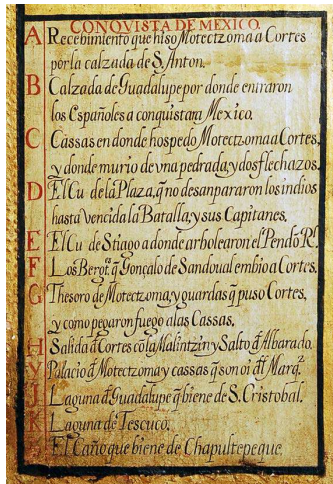 CONQVISTA DE MEXICO.
A Recebimiento que hiso Motectzoma a Cortes
por la calzada de S. Anton.
B Calzada de Guadalupe por donde entraron
los Españoles a conquistar a Mexico.
C Cassas en donde hospedo Motectzoma a Cortes,
y donde murio de vna pedrada, y dos flechazos.
D El Cu de la Plaza, q̃ no desanpararon los indios
hasta vencida la Batalla, y sus Capitanes.
E El Cu de Stiago a donde arbolearon el Pendō Rˡ.
F Los Bergot.ˢ q̃ Gonçalo de Sandoual embio a Cortes.
G Thesoro de Motectzoma, y guardas q̃ puso Cortes,
y como pegaron fuego a las Cassas.
H Salida đ Cortes cō la Malintzin y Salto đ Albarado.
Y Palacio đ Motectzoma y cassas q̃ son oi đl Marq.ᶻ
J Laguna đ Guadalupe q̃ biene de S. Cristobal.
K Laguna de Tescuco.
El Caño que biene de Chapultepeque.